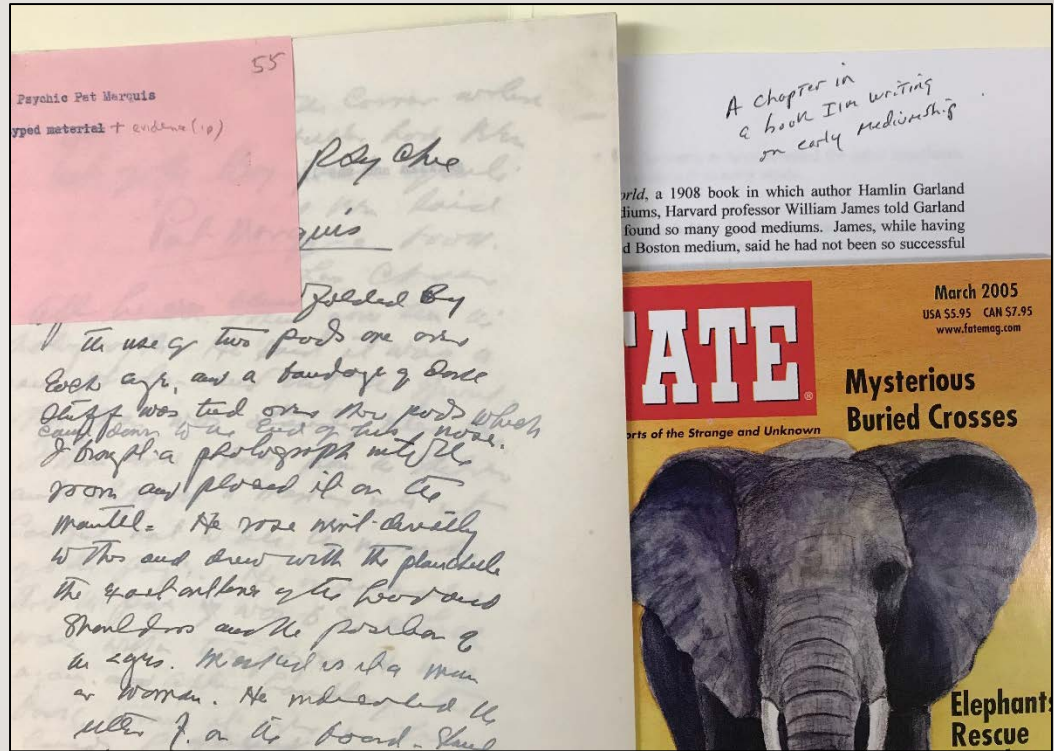 55
Psychic Pat Marquis
yped material + evidence (1p)
Psychic
quis
folded By
the use of two pods one over
Each eye, and a bandage of some
stuff was tied over the pods which
came down to the End of his nose.
I brought a photograph into the
room and placed it on the
mantel. He rose went directly
to this and drew with the planchette
the exact outline of the head and
shoulders and the position of
the eyes. I asked is it a man
or woman. He indicated the
letter F. on the board -
A chapter in
a book I'm writing
on early mediumship.
orld, a 1908 book in which author Hamlin Garland
diums, Harvard professor William James told Garland
found so many good mediums. James, while having
d Boston medium, said he had not been so successful
March 2005
USA $5.95 CAN $7.95
www.fatemag.com
ATE®
orts of the Strange and Unknown
Mysterious
Buried Crosses
Elephants
Rescue